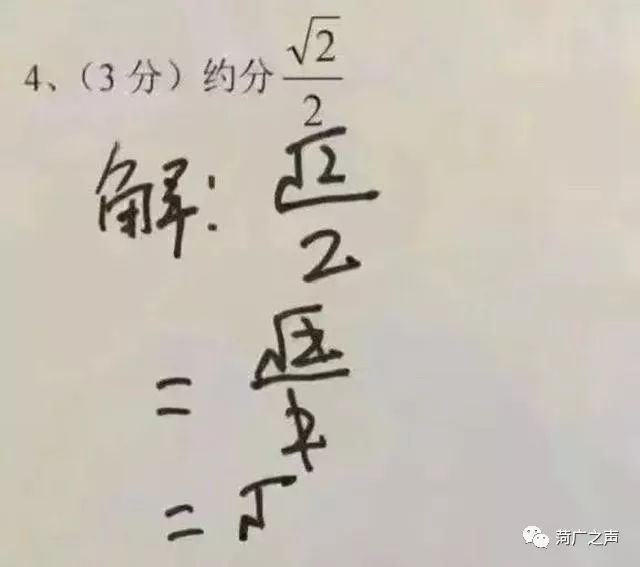 4、（3 分）约分 √2/2
解： √2/2
= √2/2
= √
菏广之声